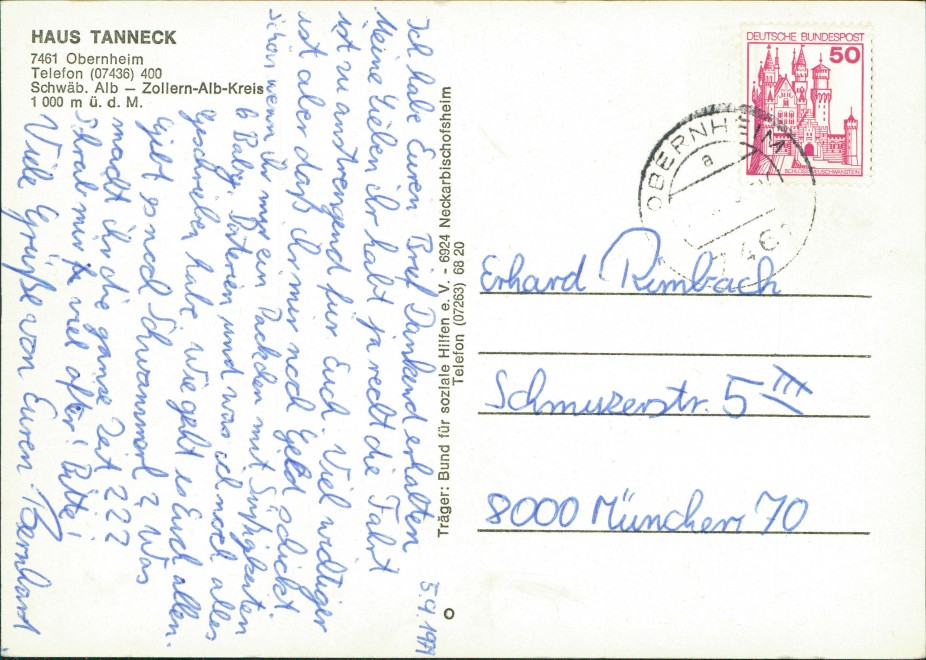 HAUS TANNECK
7461 Obernheim
Telefon (07436) 400
Schwäb. Alb — Zollern-Alb-Kreis
1 000 m ü. d. M.
5.9.1979
Ich habe Euren Brief Dankend erhalten
Meine Lieben ihr habt ja recht die Fahrt
ist zu anstrengend für Euch. Viel widtiger
ist aber daß ihr mir noch Geld schickt
Schön wenn ihr mir ein Päckchen mit Süßigkeiten
6 Baby Baterien und was ich noch alles
Geschrieben habe. Wie geht es Euch allen.
Giebt es noch Schwammerl? Was
macht ihr die ganze Zeit ???
Schreibt mir viel öfter! Bitte!
Viele Grüße von Euren Bernhard
Träger: Bund für soziale Hilfen e. V. - 6924 Neckarbischofsheim
Telefon (07263) 68 20
DEUTSCHE BUNDESPOST
50
SCHLOSS NEUSCHWANSTEIN
OBERNHEIM
a
746
Erhard Rimbach
Schmuzerstr. 5 III
8000 München 70